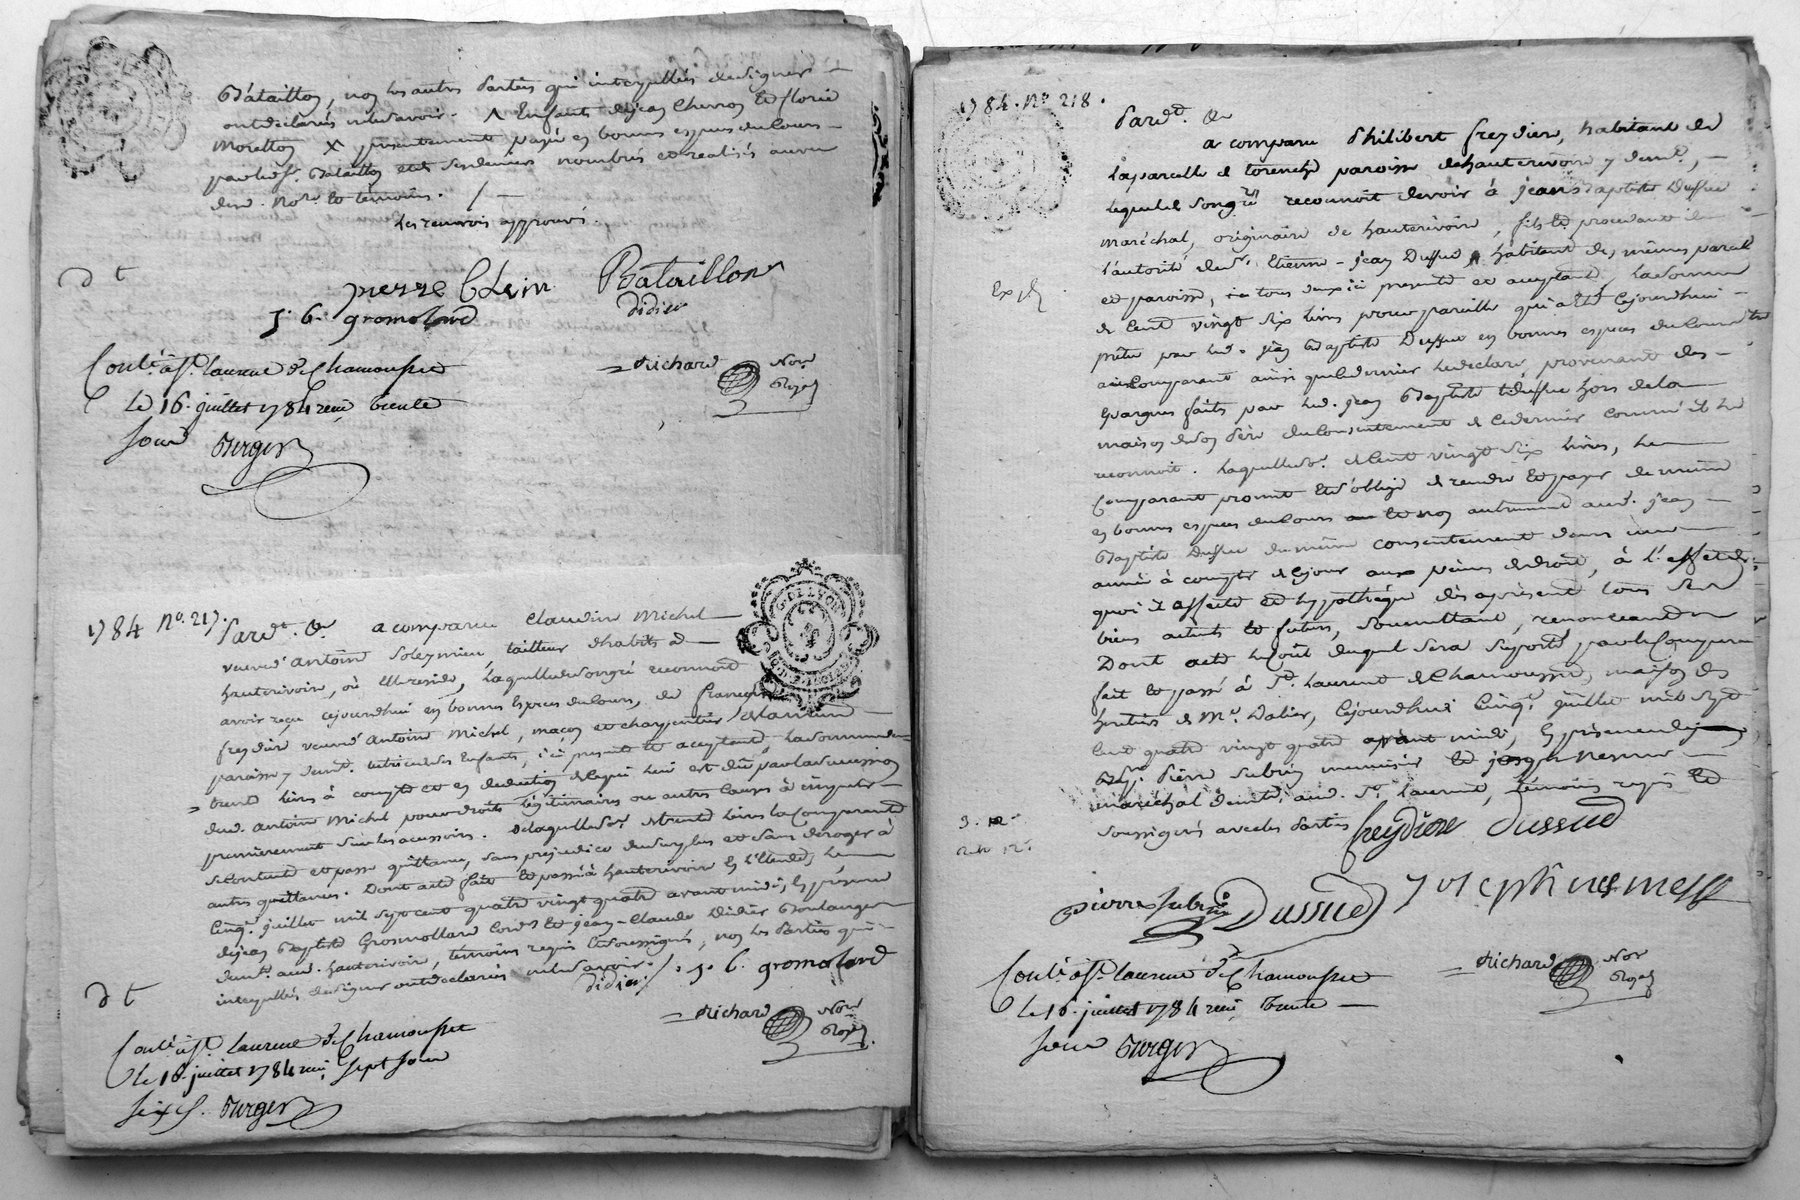 Bataillon, non les autres parties qui interpellées de signer
ont declarés ne le savoir. ⁁ Enfants de jean Cherron et de florie
Moretton X presentement payée en bonnes especes du Cours
par led. sr. Bataillon et nombrés et realisés au vu
dud. Nore. et temoins.
Les renvois approuvés.
pierre Blein Bataillon
j. b. gromolard didier
Richard Nore
Royal
Contlé. à St. Laurent de Chamousset
Le 16. juillet 1784 reçu trente
sous Burger
1784 No. 217.
Pardt. &a. a comparu Claudine Michel
veuve d'antoine Soleymieu, tailleur d'habits d
hauterivoire, où elle reside, Laquelle de son gré reconnoit
avoir reçu cejourdhui en bonnes especes du Cours, de françoise
freydiere veuve d'antoine Michel, maçon et charpentier
paroisse y demt. tutrice de ses Enfants, ici presente et acceptant la somme de
trente livres à compte et en deduction de ce qui lui est dû par la succession
dud. antoine Michel pour droits légitimaires ou autres causes à imputer
premierement sur les accessoires. De laquelle de. de trente livres la Comparante
se contente et passe quittance, sans prejudice du surplus et sans deroger à
autres quittances. Dont acte fait et passé à hauterivoire ès l'Etude, le
Cinq. juillet mil sept cent quatre vingt quatre avant midi, en présence
de jean Baptiste Gromollard Cordr. et jean-Claude Didier Boulanger
demt. aud. hauterivoire, temoins requis et soussignés, non les Parties qui
interpellées de signer ont declarées ne le savoir.
didier j. b. gromolard
Richard Nore
Royal
Contlé. à St. Laurent de Chamousset
Le 16. juillet 1784 reçu sept sous
six d. Burger
1784. No. 218.
Pardt. &a.
a comparu Philibert freydiere, habitant de
la parcelle de torenche paroisse de hauterivoire y demt.,
lequel de son gré reconnoit devoir à jean Baptiste Dussud
maréchal, originaire de hauterivoire, fils et procedant de
l'autorité de sr. Etienne-jean Dussud, habitant des mêmes parcelle
et paroisse, tous deux ici presents et acceptants, La somme
de Cent vingt six livres pour pareille qui a été cejourdhui
prêtée par led. jean Baptiste Dussud en bonnes especes du Cours
au Comparant ainsi que ce dernier le declare, provenant des
Epargnes faites par led. jean Baptiste Dussud hors de la
maison de son Père du Consentement de ce dernier comme il le
reconnoit. Laquelle de. de Cent vingt six livres, le
Comparant promet et s'oblige de rendre et payer de même
en bonnes especes du Cours et non autrement aud. jean
Baptiste Dussud du même consentement dans une
année à compter de ce jour aux peines de droit, à l'effet de
quoi il affecte et hypothèque dès à présent tous ses
biens actuels et futurs, soumettant, renonceant
Dont acte le Coût duquel sera suporté par le Comparant
fait et passé à St. Laurent de Chamousset, maison des
heritiers de Mr. Dalier, cejourdhui Cinq. juillet mil sept
Cent quatre vingt quatre avant midi, en présence de
Pierre Subrin menuisier et joseph Nesme
maréchal demts. aud. St. Laurent, témoins requis et
soussignés avec les Parties freydiere Dussud
pierre Subrin Dussud joseph nesme
Richard Nore
Royal
Contlé. à St. Laurent de Chamousset
Le 16. juillet 1784 reçu trente
sous Burger